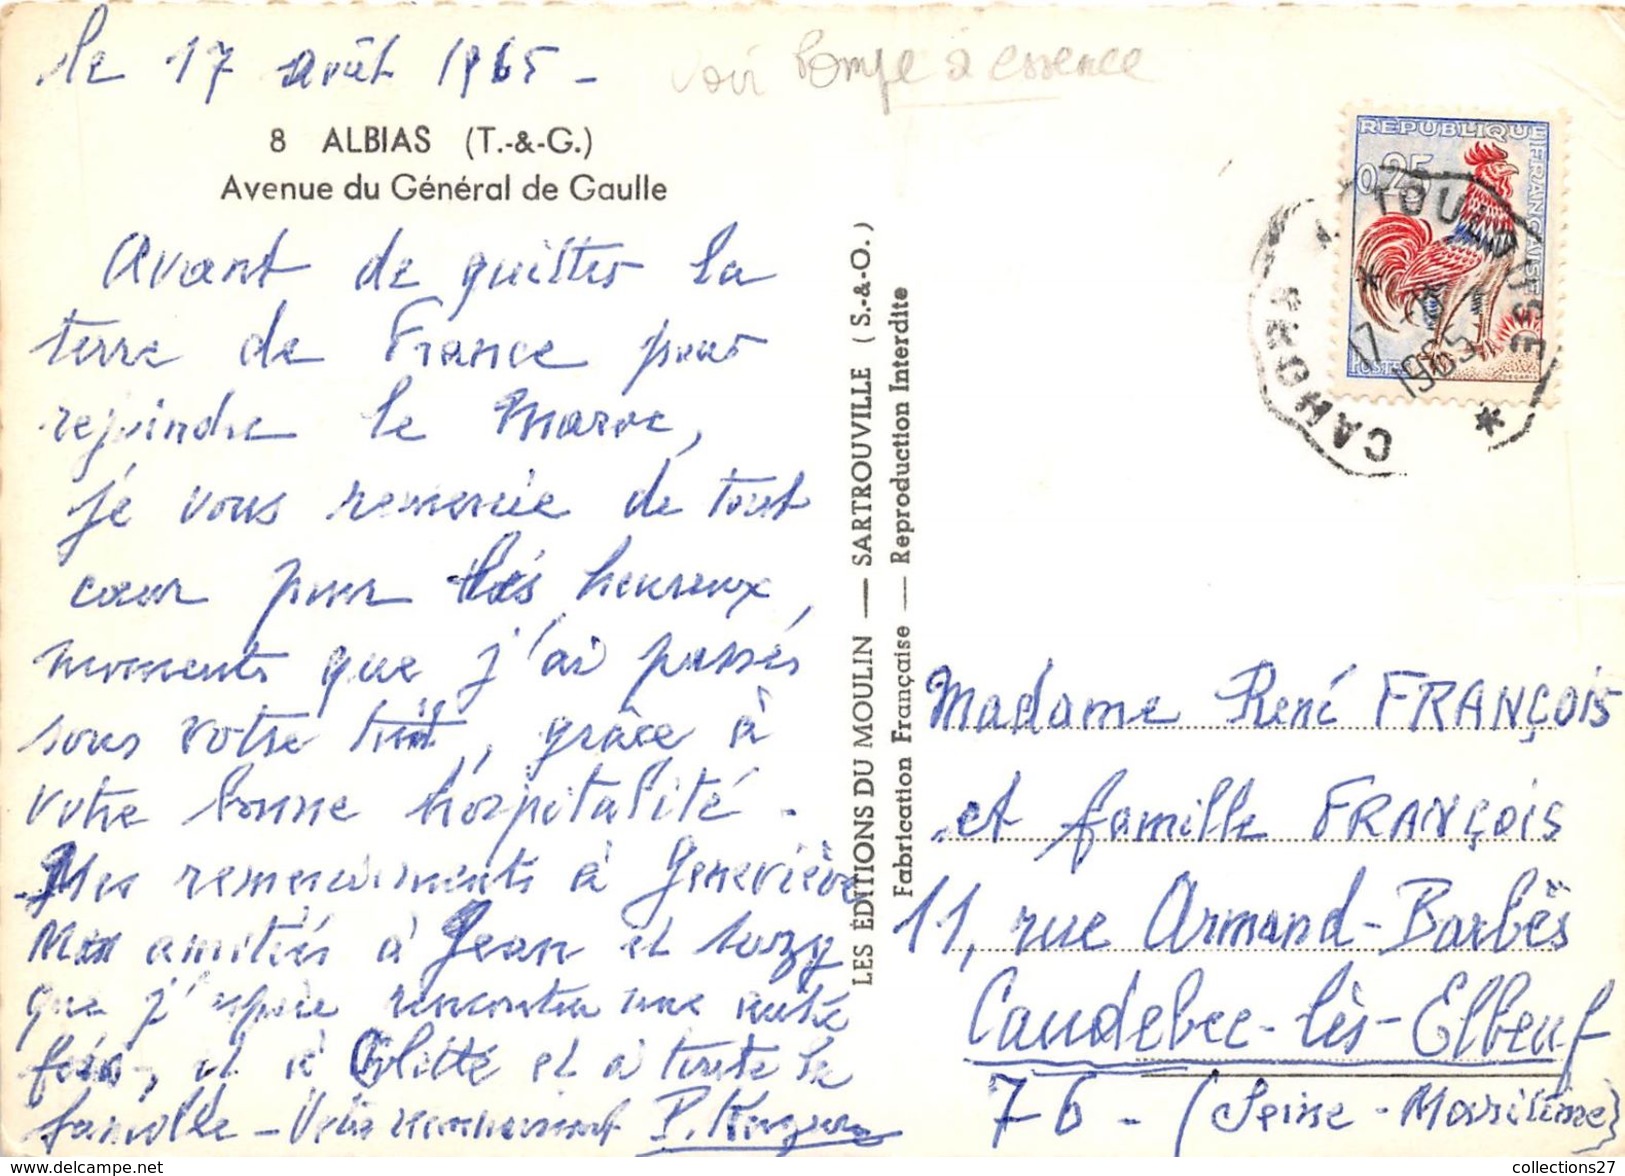 le 17 août 1965 -
voir Pompe à essence
8 ALBIAS (T.-&-G.)
Avenue du Général de Gaulle
Avant de quitter la
terre de France pour
rejoindre le Maroc,
je vous remercie de tout
cœur pour les heureux
moments que j'ai passés
sous votre toit, grâce à
votre bonne hospitalité -
Mes remerciements à Geneviève
Mes amitiés à Jean et Suzy
que j'espère rencontrer une autre
fois, et à Colette et à toute la
famille - Votre reconnaissant P.
LES ÉDITIONS DU MOULIN — SARTROUVILLE (S.-&-O.)
Fabrication Française — Reproduction Interdite
REPUBLIQUE FRANÇAISE
0,25
POSTES
DECARIS
CAHORS A TOULOUSE
17 - 8
1965
Madame René FRANÇOIS
et famille FRANÇOIS
11, rue Armand-Barbès
Caudebec-lès-Elbeuf
76 - (Seine-Maritime)
collections27